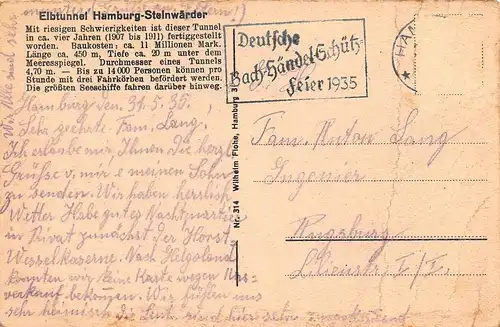 Elbtunnel Hamburg-Steinwärder
Mit riesigen Schwierigkeiten ist dieser Tunnel
in ca. vier Jahren (1907 bis 1911) fertiggestellt
worden. Baukosten: ca. 11 Millionen Mark.
Länge ca. 450 m, Tiefe ca. 20 m unter dem
Meeresspiegel. Durchmesser eines Tunnels
4,70 m. — Bis zu 14000 Personen können pro
Stunde mit drei Fahrkörben befördert werden.
Die größten Seeschiffe fahren darüber hinweg.
Deutsche
Bach-Händel-Schütz-
Feier 1935
HAM
Wilhelm Flohe, Hamburg 3
Nr. 314
Hamburg den 31.5.35.
Sehr geehrte Fam. Lang.
Ich erlaube mir, Ihnen die herzl.
Grüße v. mir e meinen Sohn
zu senden. Wir haben herrlich
Wetter Habe gutes Nachtquartier
in Privat zunächst der Horst
Wesselkaserne. Nach Helgoland
konnten wir keine Karte wegen
verkauf bekommen. Wir fühlen uns
sehr heimisch die Leute sind hier sehr
Fam. Anton Lang
Ingenier
Augsburg
Lilienstr.